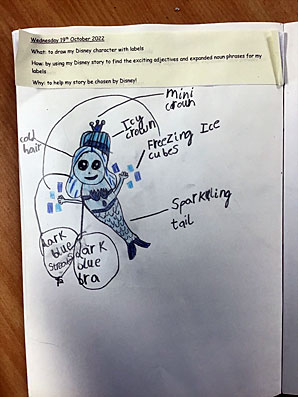 Wednesday 19th October 2022
What: to draw my Disney character with labels
How: by using my Disney story to find the exciting adjectives and expanded noun phrases for my
labels
Why: to help my story be chosen by Disney!
mini
crown
Icy
crown
cold
hair
Freezing Ice
cubes
Sparkling
tail
dark
blue
dark
blue
bra